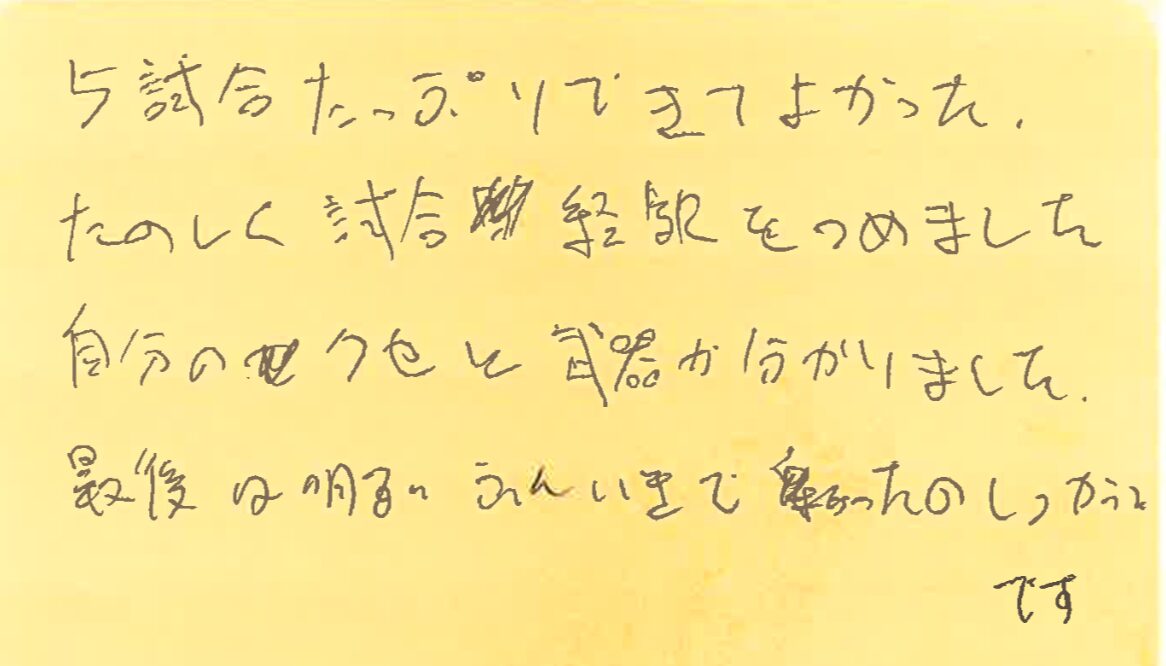 5試合たっぷりできてよかった.
たのしく試合経験をつめました
自分のクセと武器が分かりました.
最後は明るいふんいきでたのしかった
です